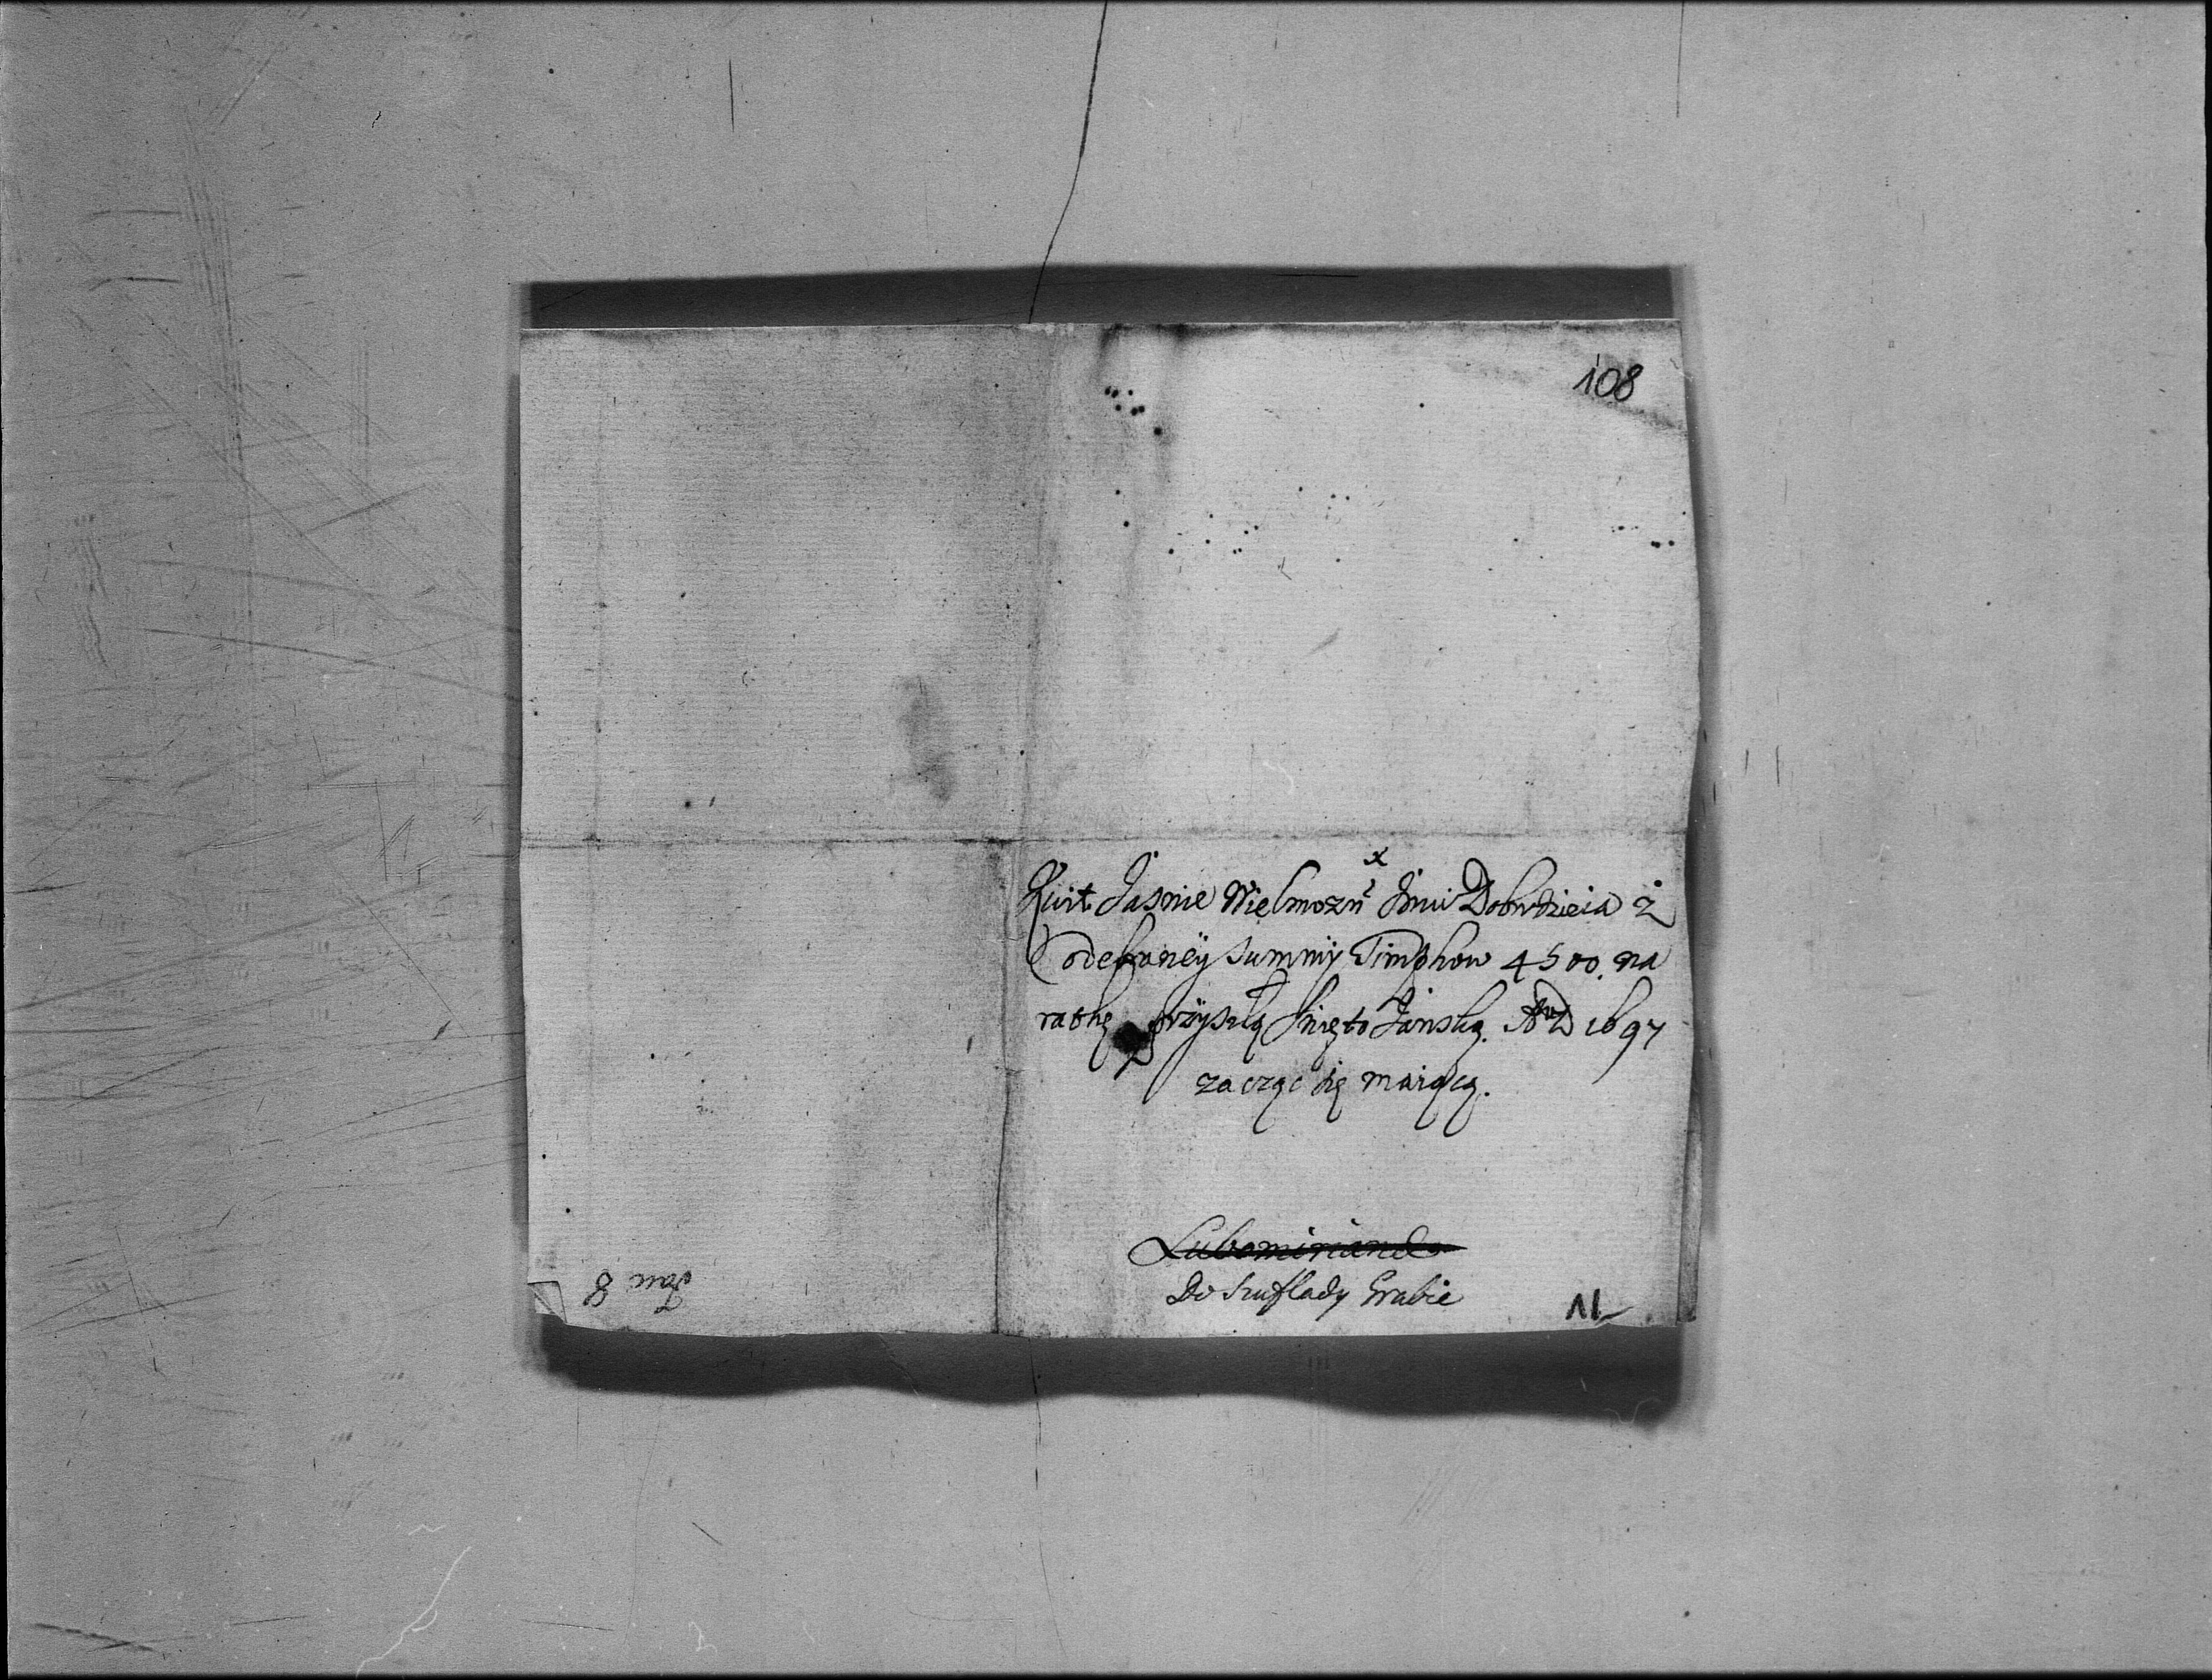 108
Kwit Jasnie Wielmozn̄ x Jmci Dobrodzieia z
odebraney Summy Timphow 4500. na
rathę przyszłą Swięto Jańską. AD 1697
zacząc się maiącą.
Lubomiriana
Do Szuflady Grabie
Fasc 8